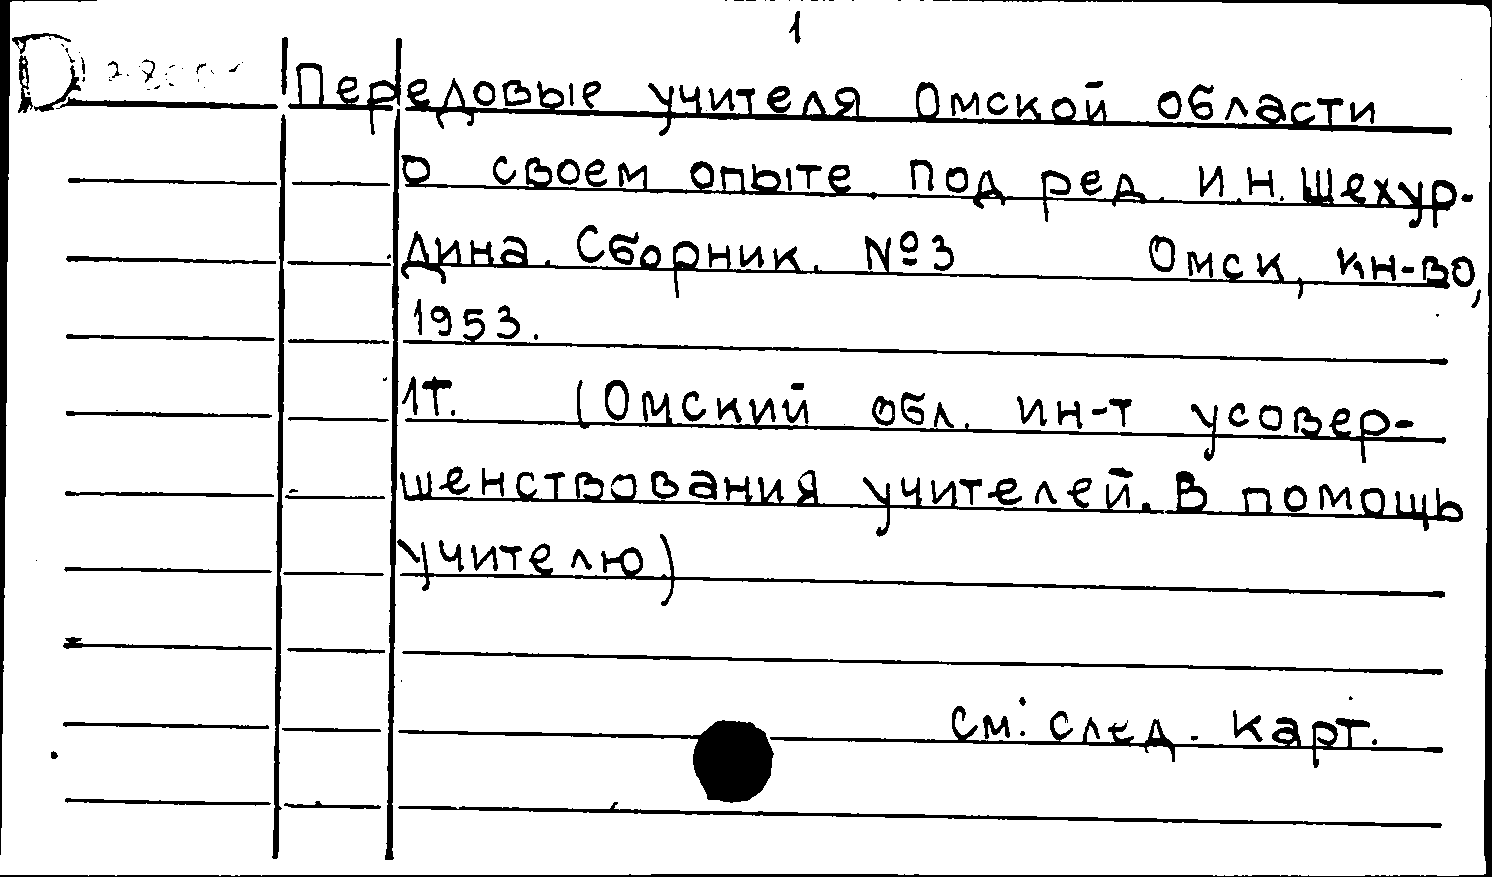 1
Передовые учителя Омской области
о своем опыте. Под ред. И.Н. Шехур-
дина. Сборник. №3 Омск, кн-во,
1953.
1Т. (Омский обл. ин-т усовер-
шенствования учителей. В помощь
учителю)
см. след. карт.